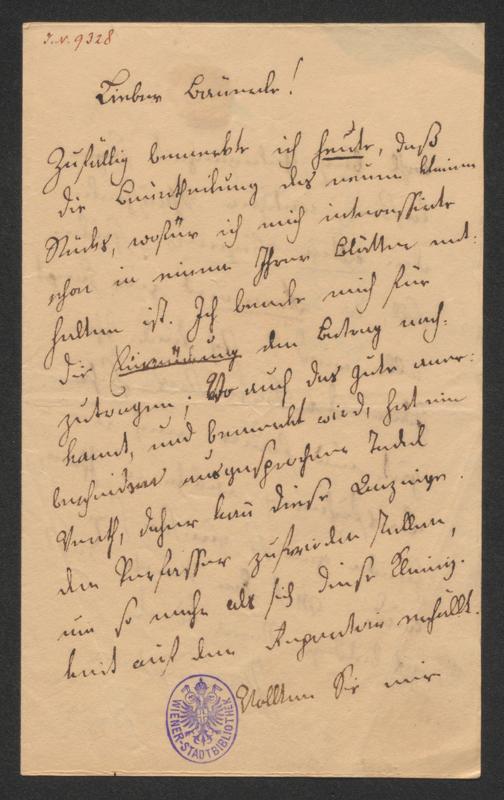 I.N. 9328
Lieber Bäuerle!
Zufällig bemerkte ich heute, daß
die Beurtheilung des neuen kleinen
Stücks, wofür ich mich interessirte
schon in einem Ihrer Blätter ent-
halten ist. Ich beeile mich für
die Einrückung den Betrag nach-
zutragen; Wo auch das Gute aner-
kannt, und bemerkt wird, hat ein
bescheiden ausgesprochener Tadel
Werth, daher kan diese Anzeige
den Verfasser zufrieden stellen,
um so mehr als sich diese Kleinig-
keit auf dem Repertoir erhällt.
Wollten Sie mir
WIENER-STADTBIBLIOTHEK